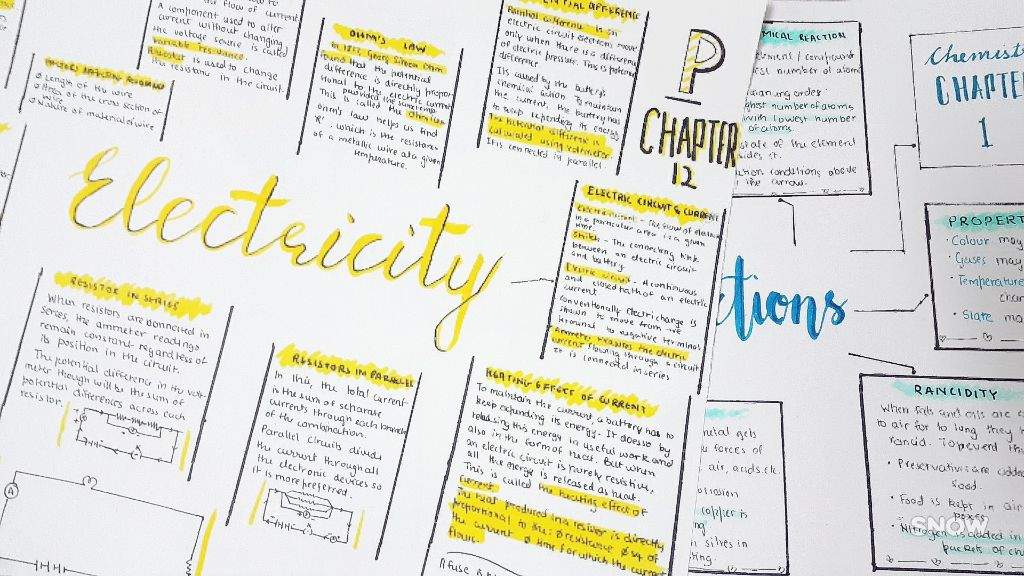 the flow of current
A component used to alter
current without changing
the voltage source is called
variable resistance.
Rheostat is used to change
the resistance in the circuit.
Length of the wire
Area of the cross section of
wire
Nature of material of wire
OHM'S LAW
found that the potential
difference is directly propor
tional to the electric current
This is called the
ohm's law helps us find
'R' : which is the resistance
of a metallic wire at a given
temperature.
electric circuit electrons move
only when there is a difference
of electric pressure. This is potential
difference
Its caused by the battery's
chemical action. To maintain
the current, the battery has
to keep expending its energy
The potential difference is
calculated using voltmeter.
It is connected in parallel.
P
CHAPTER
12
Electricity
ELECTRIC CIRCUIT & CURRENT
Electric current - The flow of electric
in a particular area in a given
time.
Switch - The connecting link
between an electric circuit
and battery.
Electric circuit - A continuous
and closed path of an electric
current
Conventionally electric charge is
shown to move from +ve
terminal to negative terminal
Ammeter measures the electric
current flowing through a circuit
It is connected in series
RESISTOR IN SERIES
When resistors are connected in
series, the ammeter readings
remain constant regardless of
its position in the circuit.
The potential difference in the volt-
meter though will be the sum of
potential differences across each
resistor.
A
RESISTORS IN PARALLEL
In this, the total current
is the sum of separate
currents through each branch
of the combination.
Parallel circuits divide
the current through all
the electronic devices so
it is more preferred.
HEATING EFFECT OF CURRENT
To maintain the current, a battery has to
keep expending its energy. It does so by
releasing this energy in useful work and
also in the form of heat. But when
an electric circuit is purely resistive,
all the energy is released as heat.
This is called the heating effect of
current.
The heat produced in a resistor is directly
proportional to the: resistance sq of
the current time for which the current
flows.
A fuse is
MICAL REACTION
est number of atoms
ghest number of atoms
with lowest number
of atoms.
state of the element
ides it.
tion conditions above
the arrow.
Chemist
CHAPTE
1
ctions
PROPERT
Colour may
Gases may
Temperature
chan
State ma
RANCIDITY
When fats and oils are o
to air for to long they b
rancid. To prevent th
Preservatives are added
food.
Food is kept in air
Nitrogen is added in
packets of ch
metal gets
forces of
air, acids, etc.
orrosion
copper is
h silver in
ting.
SNOW